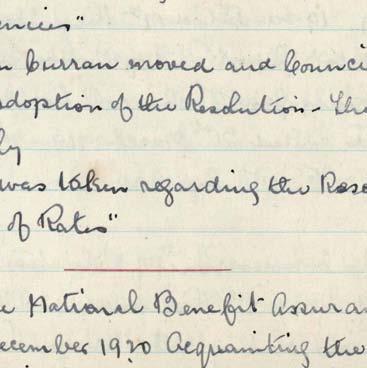 encies"
n Curran moved and Counci
adoption of the Resolution - The
ly
was taken regarding the Reso
of Rates"
e National Benefit Assuran
ecember 1920 Acquainting the